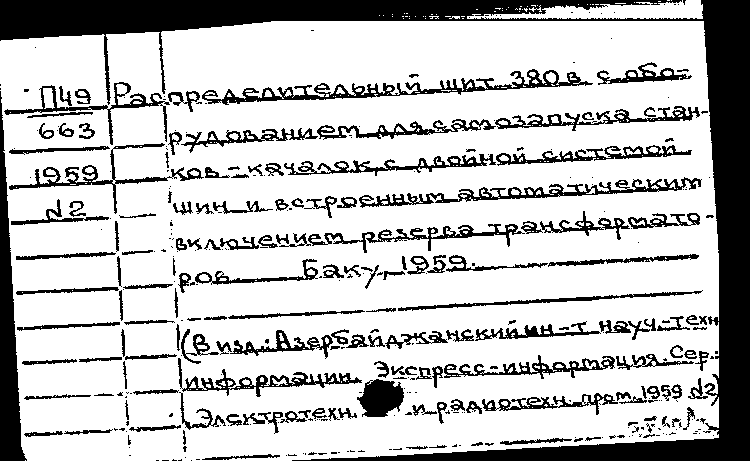 П49 Распределительный щит 380 в с обо-
663 рудованием для самозапуска стан-
1959 ков-качалок, с двойной системой
№2 шин и встроенным автоматическим
включением резерва трансформато-
ров. Баку, 1959.
(В изд.: Азербайджанский ин-т науч.-техн
информации. Экспресс-информация. Сер.:
Электротехн. и радиотехн. пром. 1959 №2)